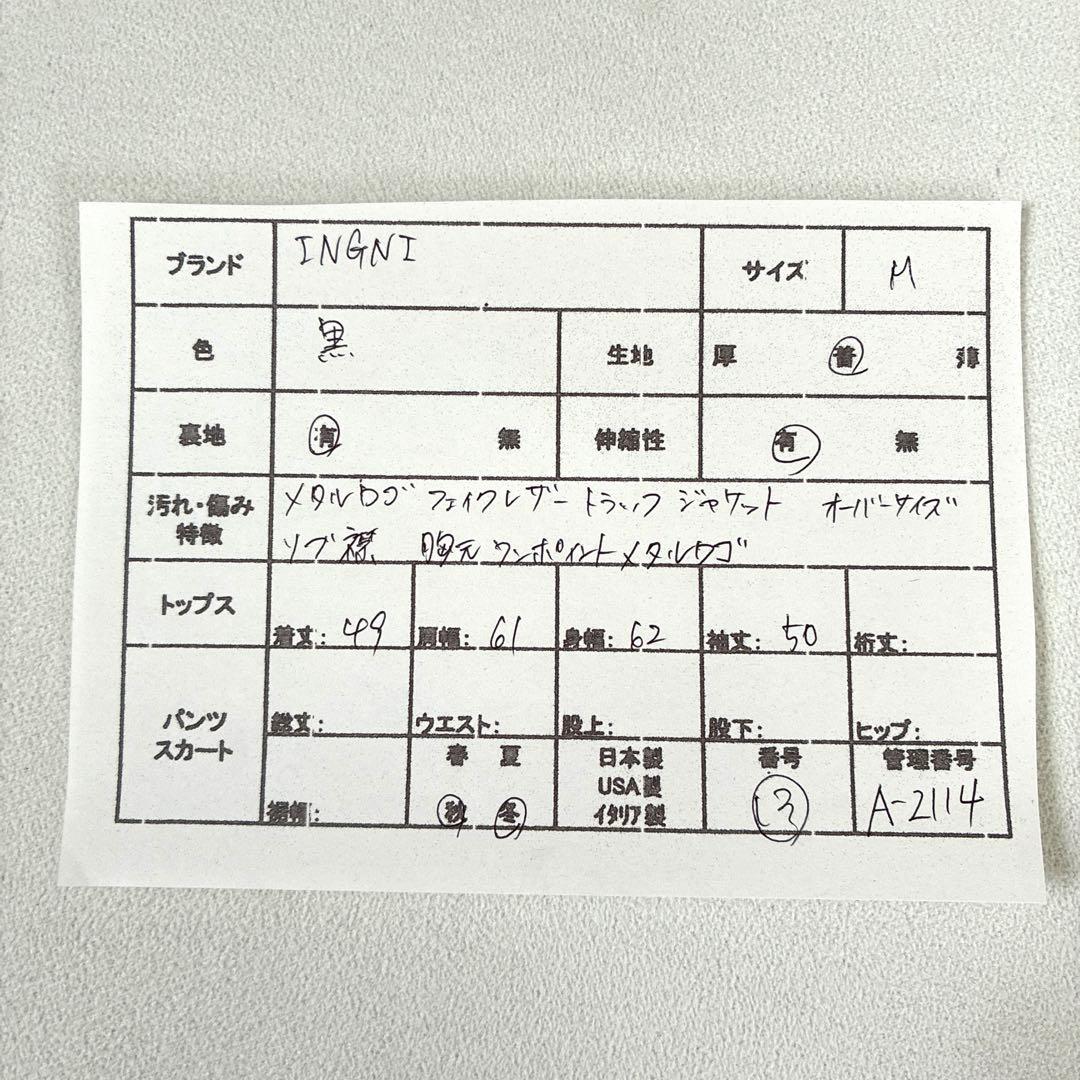 ブランド INGNI サイズ M
色 黒 生地 厚 普 薄
裏地 有 無 伸縮性 有 無
汚れ・傷み
特徴
メタルロゴ フェイクレザー トラックジャケット オーバーサイズ
リブ襟 胸元ワンポイントメタルロゴ
トップス 着丈: 49 肩幅: 61 身幅: 62 袖丈: 50 裄丈:
パンツ
スカート
総丈: ウエスト: 股上: 股下: ヒップ:
裾幅:
春 夏
秋 冬
日本製
USA製
イタリア製
番号
13
管理番号
A-2114